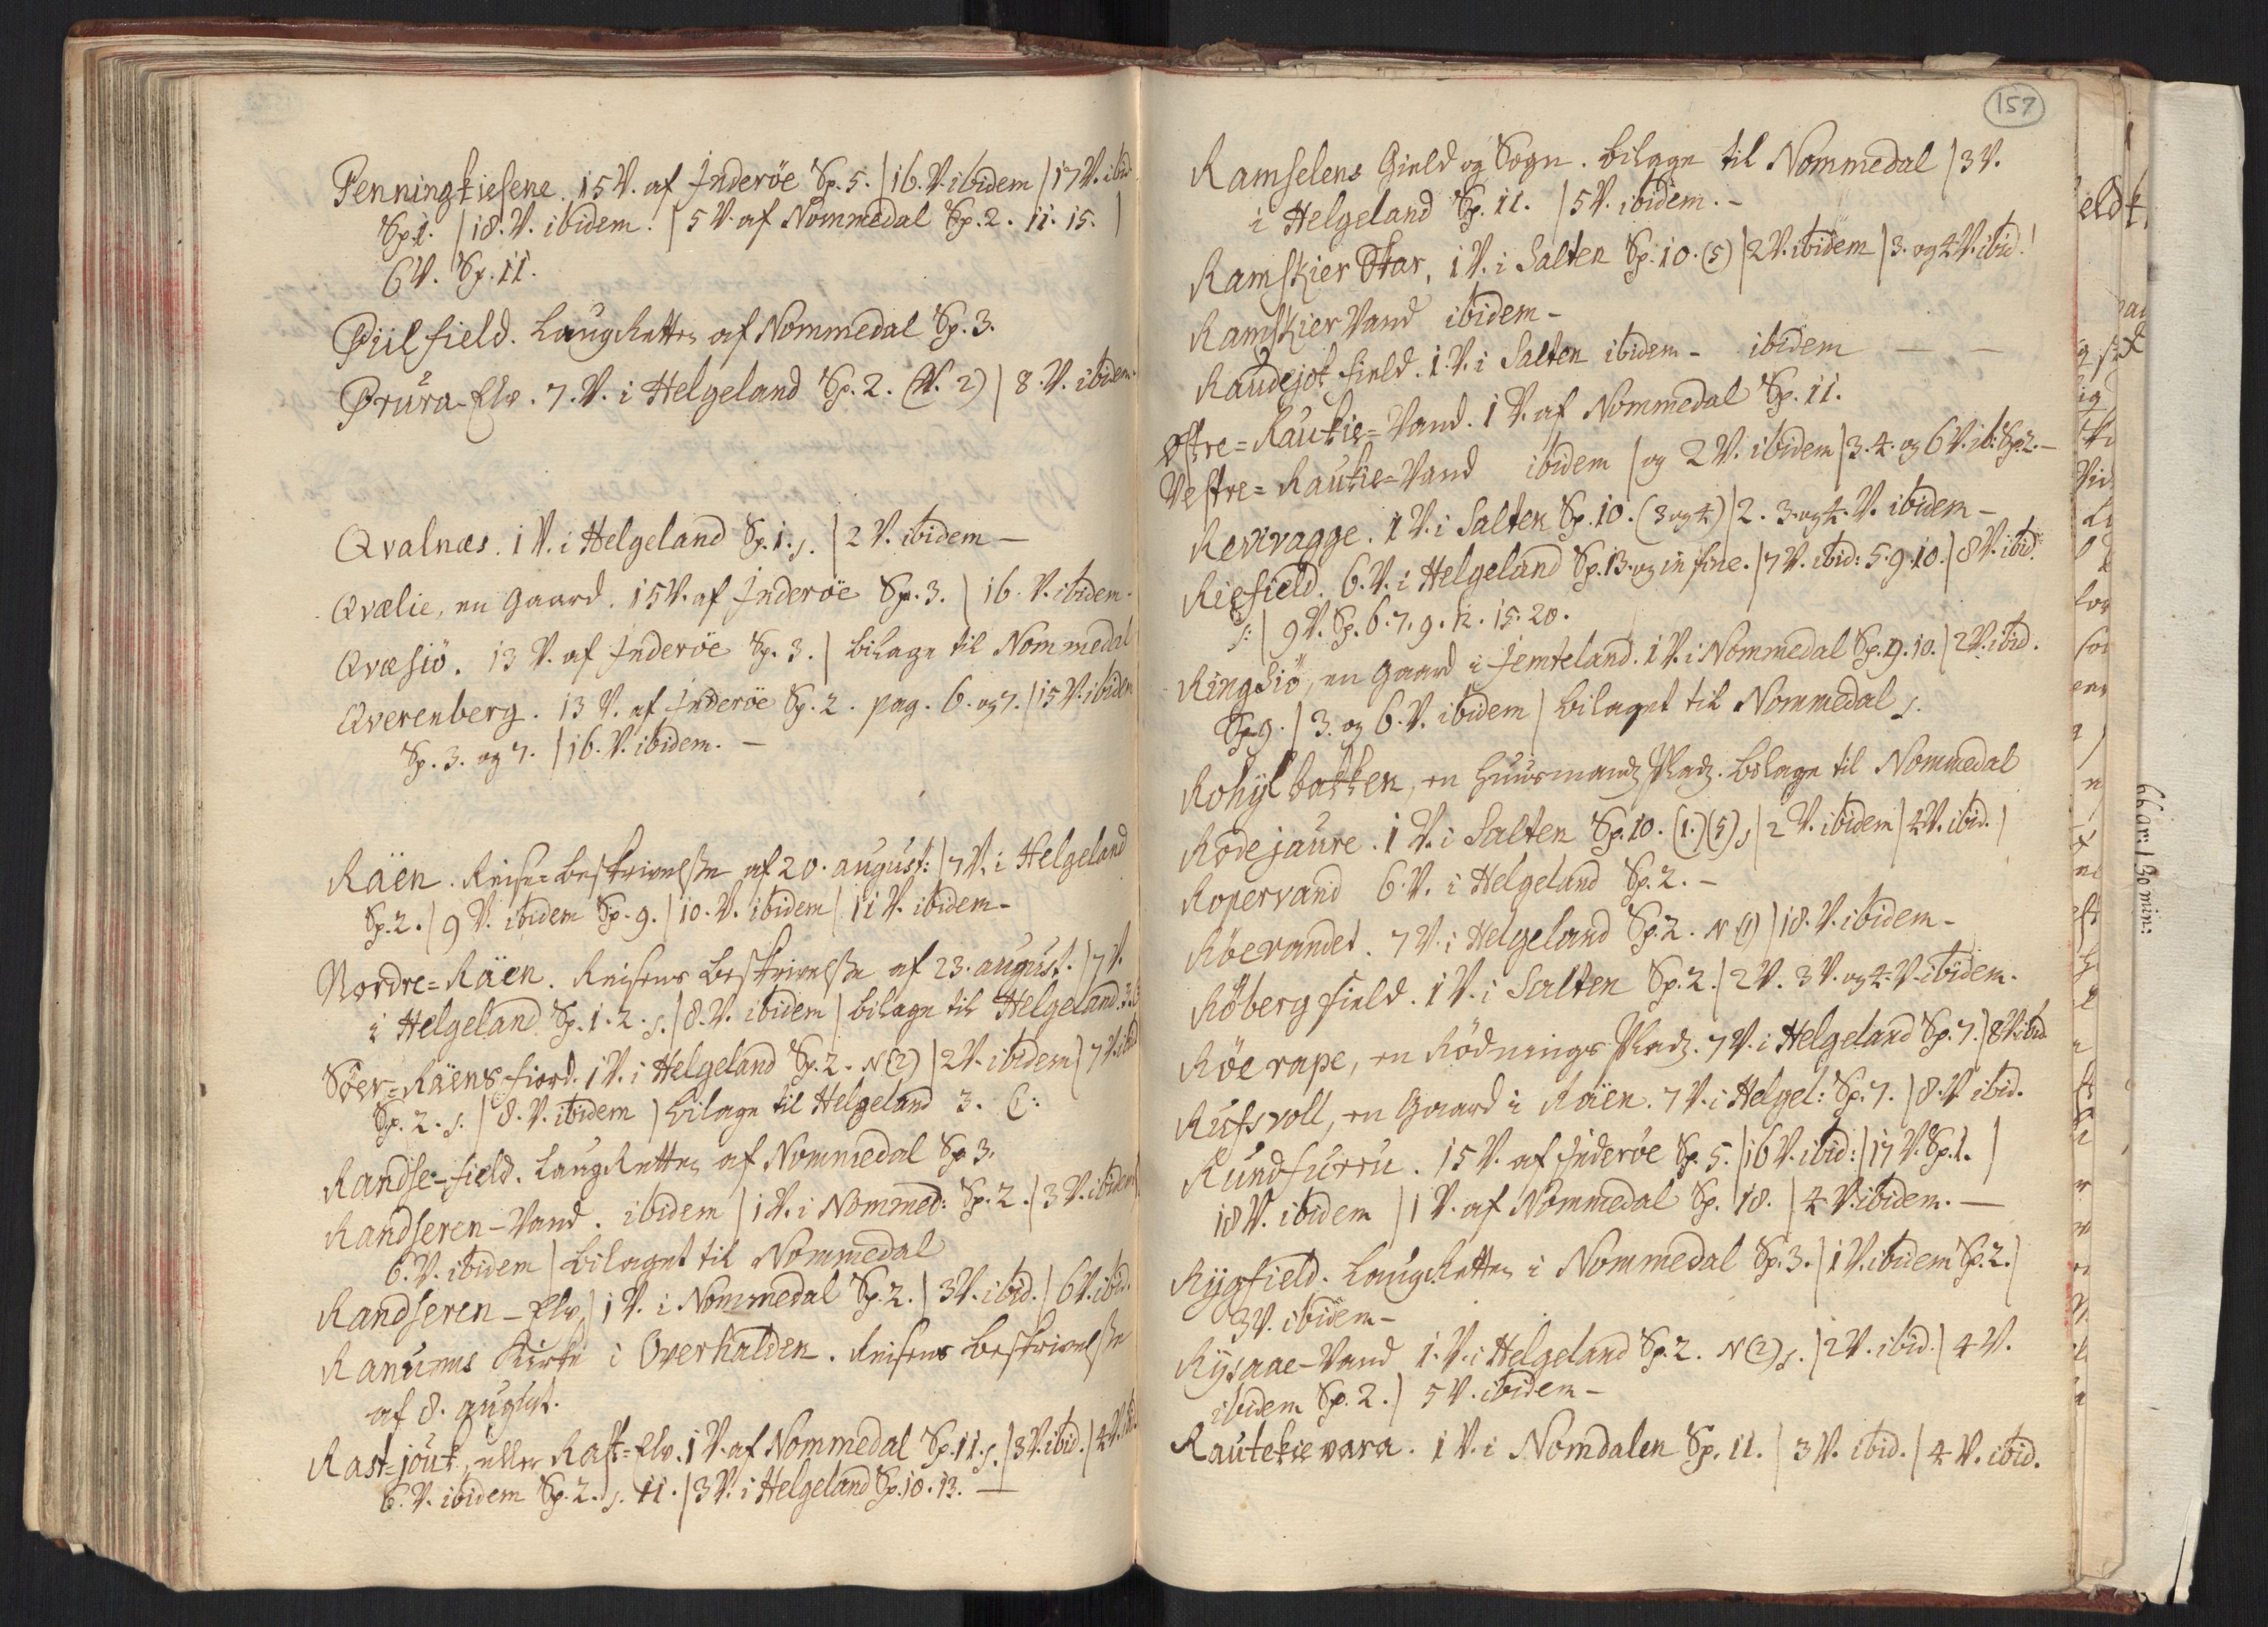 Penningkiesene. 15 V. af Inderöe Sp. 5. | 16. V. ibidem | 17 V. ibid
Sp. 1. | 18. V. ibidem. | 5 V. af Nommedal Sp. 2. 11. 15. |
6 V. Sp. 11.
Piilfield. Laug Retten af Nommedal Sp. 3.
Prura-Elv. 7. V. i Helgeland Sp. 2. (N. 2) | 8. V. ibidem.
Qvalnæs. 1 V. i Helgeland Sp. 1. s. | 2 V. ibidem —
Qvælie, en Gaard. 15 V. af Inderöe Sp. 3. | 16. V. ibidem.
Qvæsiö. 13 V. af Inderöe Sp. 3. | bilage til Nommedal
Qverenberg. 13 V. af Inderöe Sp. 2. pag. 6. og 7. | 15 V. ibidem
Sp. 3. og 7. | 16. V. ibidem. —
Räen. Reise-beskrivelsse af 20. august: | 7 V. i Helgeland
Sp. 2. | 9 V. ibidem Sp. 9. | 10. V. ibidem | 11 V. ibidem -
Nordre=Räen. Reisens beskrivelsse af 23. august. | 7 V.
i Helgeland Sp. 1. 2. s. | 8. V. ibidem | bilage til Helgeland
Söer=Räens fiord. 1 V. i Helgeland Sp. 2. N (2) | 2 V. ibidem | 7 V. ibid
Sp. 2. s. | 8. V. ibidem | bilage til Helgeland 3. C:
Randse-field. Laug Retten af Nommedal Sp 3.
Randseren-Vand. ibidem | 1 V. i Nommed: Sp. 2. | 3 V. ibidem
6. V. ibidem | bilaget til Nommedal
Randseren-Elv | 1 V. i Nommedal Sp. 2. | 3 V. ibid. | 6 V. ibid.
Ranums Kirke i Overhalden. Reisens beskrivelsse
af 8. august.
Rast=jouk, eller Rast=Elv. 1 V. af Nommedal Sp. 11. s. | 3 V. ibid. | 4 V. ibid
6. V. ibidem Sp. 2. s. 11. | 3 V. i Helgeland Sp. 10. 13. —
157
Ramselens Gield og Sogn. bilage til Nommedal | 3 V.
i Helgeland Sp. 11. | 5 V. ibidem. -
Ramskier Skar, 1 V. i Salten Sp. 10. (5) | 2 V. ibidem | 3. og 4 V. ibid.
Ramskier Vand ibidem -
Raudejok field. 1. V. i Salten ibidem - ibidem — —
Østre=Raukie=Vand. 1 V. af Nommedal Sp. 11.
Vestre=Raukie=Vand ibidem | og 2 V. ibidem | 3. 4. og 6 V. ib: Sp. 2. —
Revivagge. 1 V. i Salten Sp. 10. (3 og 4) | 2. 3. og 4. V. ibidem -
Riefield. 6. V. i Helgeland Sp. 13. og in fine. | 7 V. ibid: 5. 9. 10. | 8 V. ibid.
s: | 9 V. Sp. 6. 7. 9. 12. 15. 20.
Ringsiö, en Gaard i Jemteland. 1 V. i Nommedal Sp. 9. 10. | 2 V. ibid.
Sp 9. | 3. og 6. V. ibidem | bilaget til Nommedal s.
Rohylbakken, en Huusmandz Pladz. bilage til Nommedal
Rodejaure. 1 V. i Salten Sp. 10. (1.) (5) s | 2 V. ibidem | 4 V. ibid. |
Ropervand 6. V. i Helgeland Sp. 2. -
Röevandet. 7 V. i Helgeland Sp. 2. N (1) | 18. V. ibidem -
Röberg field. 1 V. i Salten Sp. 2. | 2 V. 3 V. og 4. V. ibidem.
Röerape, en Rödnings Pladz. 7 V. i Helgeland Sp. 7. | 8 V. ibid
Rufsvoll, en Gaard i Räen. 7 V. i Helgel: Sp. 7. | 8. V. ibid.
Rundfurru. 15 V. af Inderöe Sp. 5. | 16 V. ibid: | 17 V. Sp. 1. |
18 V. ibidem | 1 V. af Nommedal Sp. 18. | 4 V. ibidem. —
Rygfield. Laug Retten i Nommedal Sp. 3. | 1 V. ibidem Sp. 2. |
3 V. ibidem -
Rysaae-Vand 1. V. i Helgeland Sp. 2. N (2) s. | 2 V. ibid. | 4 V.
ibidem Sp. 2. | 5 V. ibidem -
Rautekievara. 1 V. i Nomdalen Sp. 11. | 3 V. ibid. | 4 V. ibid.
66 gr: 30 min: